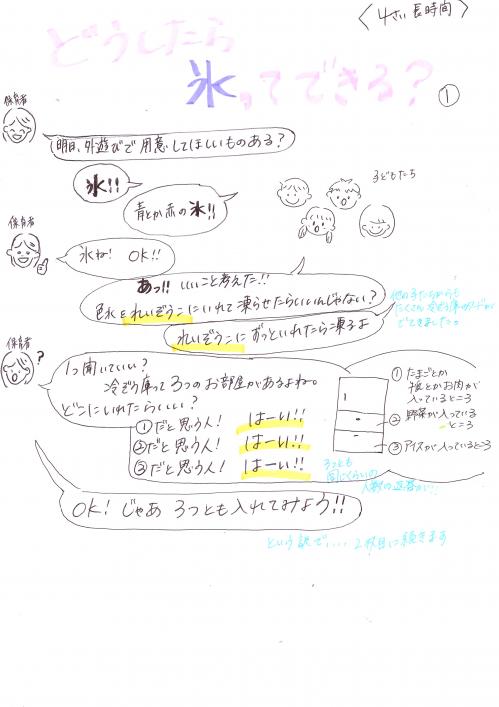 〈4さい長時間〉
どうしたら
氷ってできる?
①
保育者
明日、外遊びで用意してほしいものある?
氷!!
青とか赤の氷!!
子どもたち
保育者
氷ね! OK!!
あっ!! いいこと考えた!!
色水をれいぞうこにいれて凍らせたらいいんじゃない?
れいぞうこにずっといれたら凍るよ
他の子たちからも
たくさん冷ぞう庫のワードが
でてきました。
保育者
?
1つ聞いていい?
冷ぞう庫って3つのお部屋があるよね。
どこにいれたらいい?
①だと思う人! はーい!!
②だと思う人! はーい!!
③だと思う人! はーい!!
①たまごとか
とかお肉が
入っているところ
②野菜が入っている
ところ
③アイスが入っているところ
3つとも
同じくらいの
人数の返答が
OK! じゃあ 3つとも入れてみよう!!
という訳で.... 2枚目に続きます